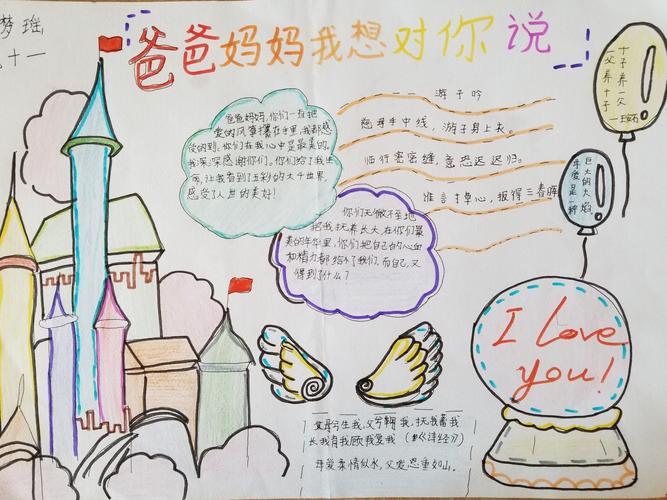 梦瑶
十一
爸爸妈妈我想对你说
十子养一父
一父养十子
爸爸妈妈,你们一直把
爱的风筝攥在手里,我都感
受的到。你们在我心中是最美的。
我深深感谢你们。你们给了我生
命,让我看到了五彩的大千世界
感受了人世的美好!
游子吟
慈母手中线,游子身上衣。
临行密密缝,意恐迟迟归。
谁言寸草心,报得三春晖
巨大的火焰
母爱是一种
你们无微不至地
把我抚养长大,在你们最
美的年华里,你们把自己的心血
和精力都给了我们,而自己,又
得到了什么?
I love
you!
兮生我,父兮鞠我,抚我蓄我
长我育我顾我爱我(《诗经》)
母爱柔情似水,父爱恩重如山。